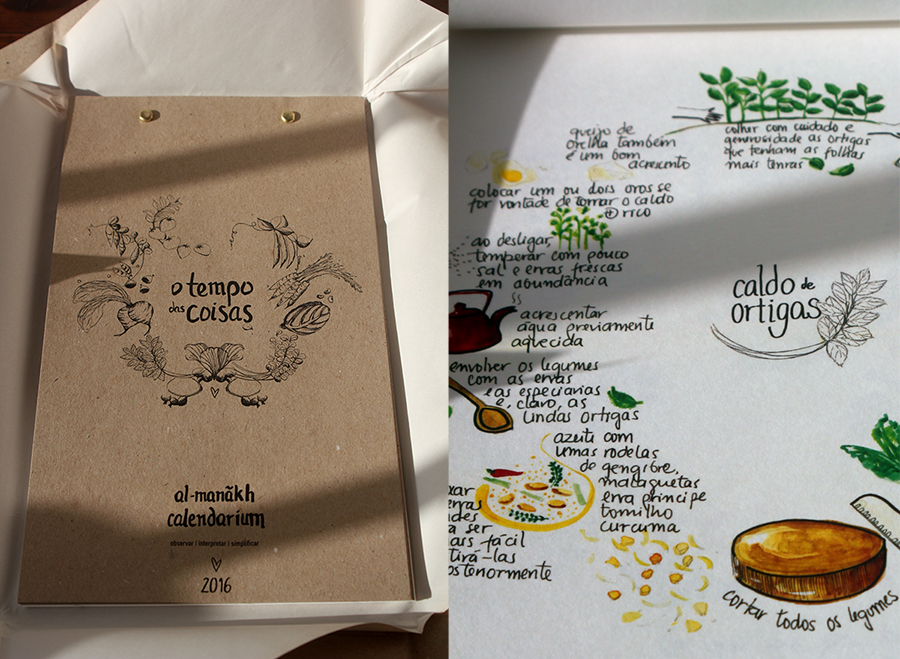 o tempo
das coisas
al-manãkh
calendarium
observar | interpretar | simplificar
2016
queijo de
orelha também
é um bom
acrescento
colher com cuidado e
generosidade as ortigas
que tenham as folhas
mais tenras
colocar um ou dois ovos se
for vontade de tornar o caldo
+ rico
ao desligar,
temperar com pouco
sal e ervas frescas
em abundância
acrescentar
água previamente
aquecida
envolver os legumes
com as ervas
e as especiarias
e, claro, as
lindas ortigas
azeite com
umas rodelas
de gengibre,
malaguetas
erva príncipe
tomilho
curcuma
a ser
fácil
tirá-las
caldo de
ortigas
cortar todos os legumes